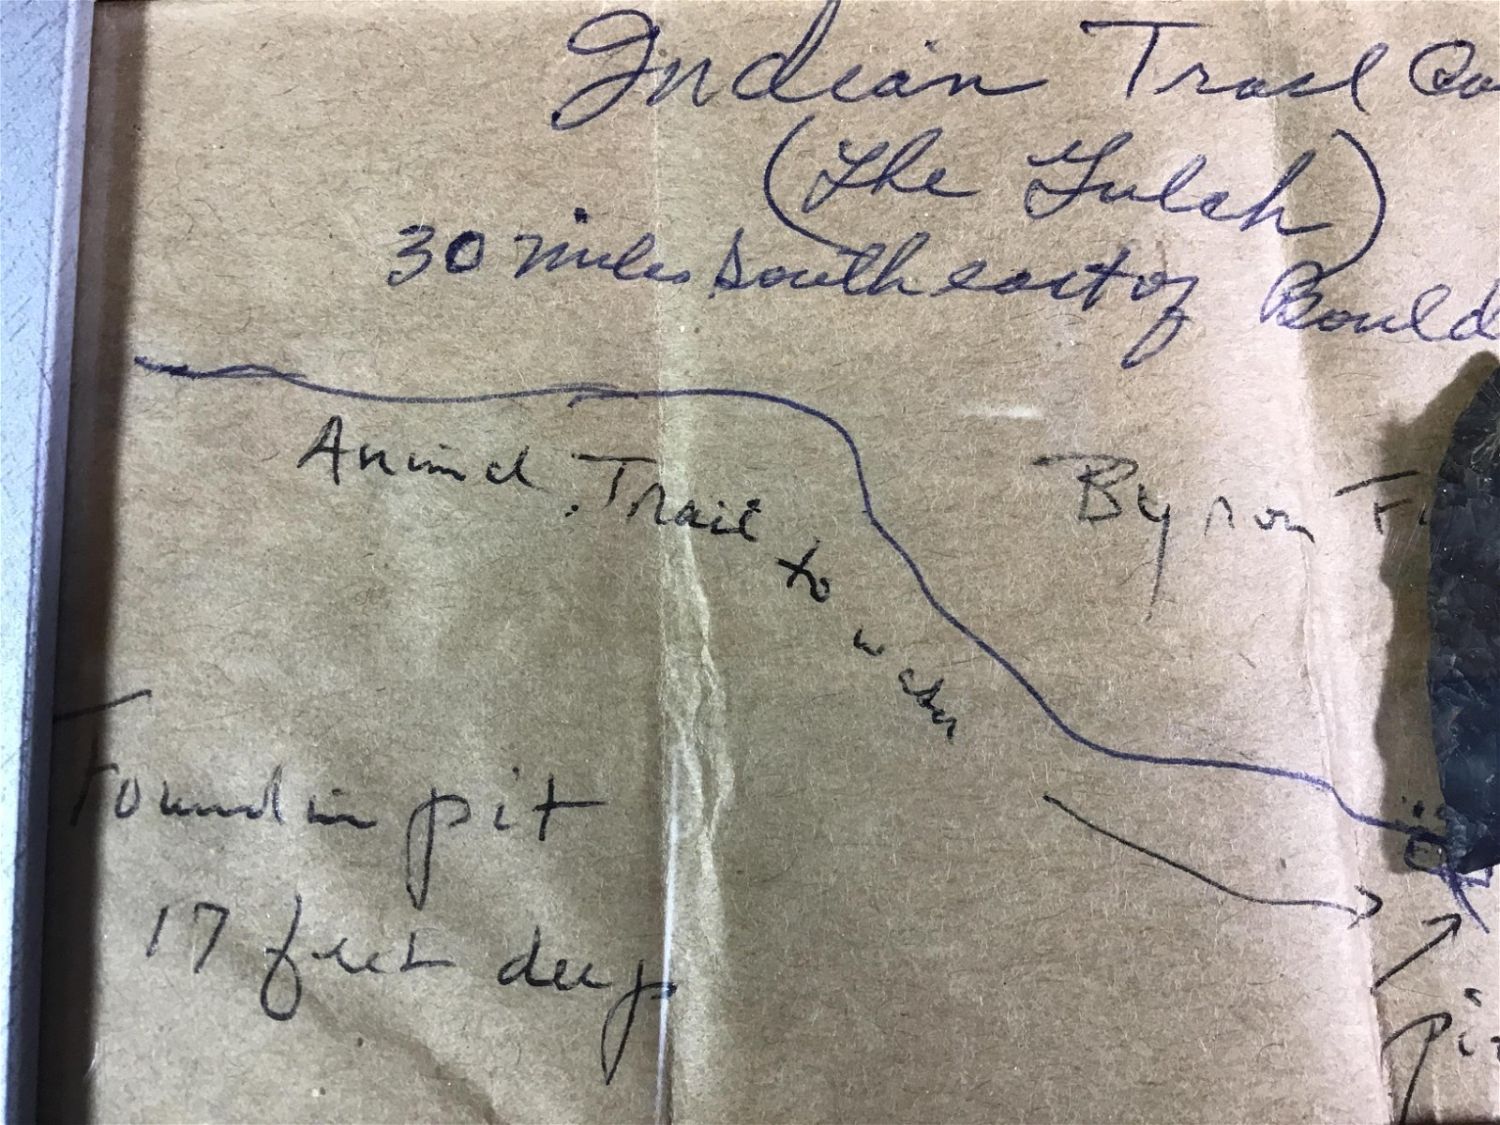 Indian Trail
(The Gulch)
30 miles southeast of Bould
Animal Trail to water
Byron
Found in pit
17 feet deep